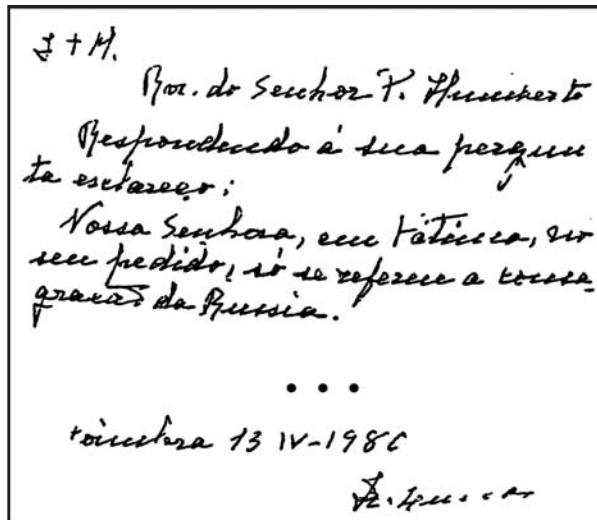 J + M.
Rev. do Senhor P. Humberto
Respondendo á sua pergun
ta esclareço:
Nossa Senhora, em Fátima, no
seu pedido, só se referiu a consa
gração da Russia.
• • •
Coimbra 13 IV-1980
Ir. Lucia